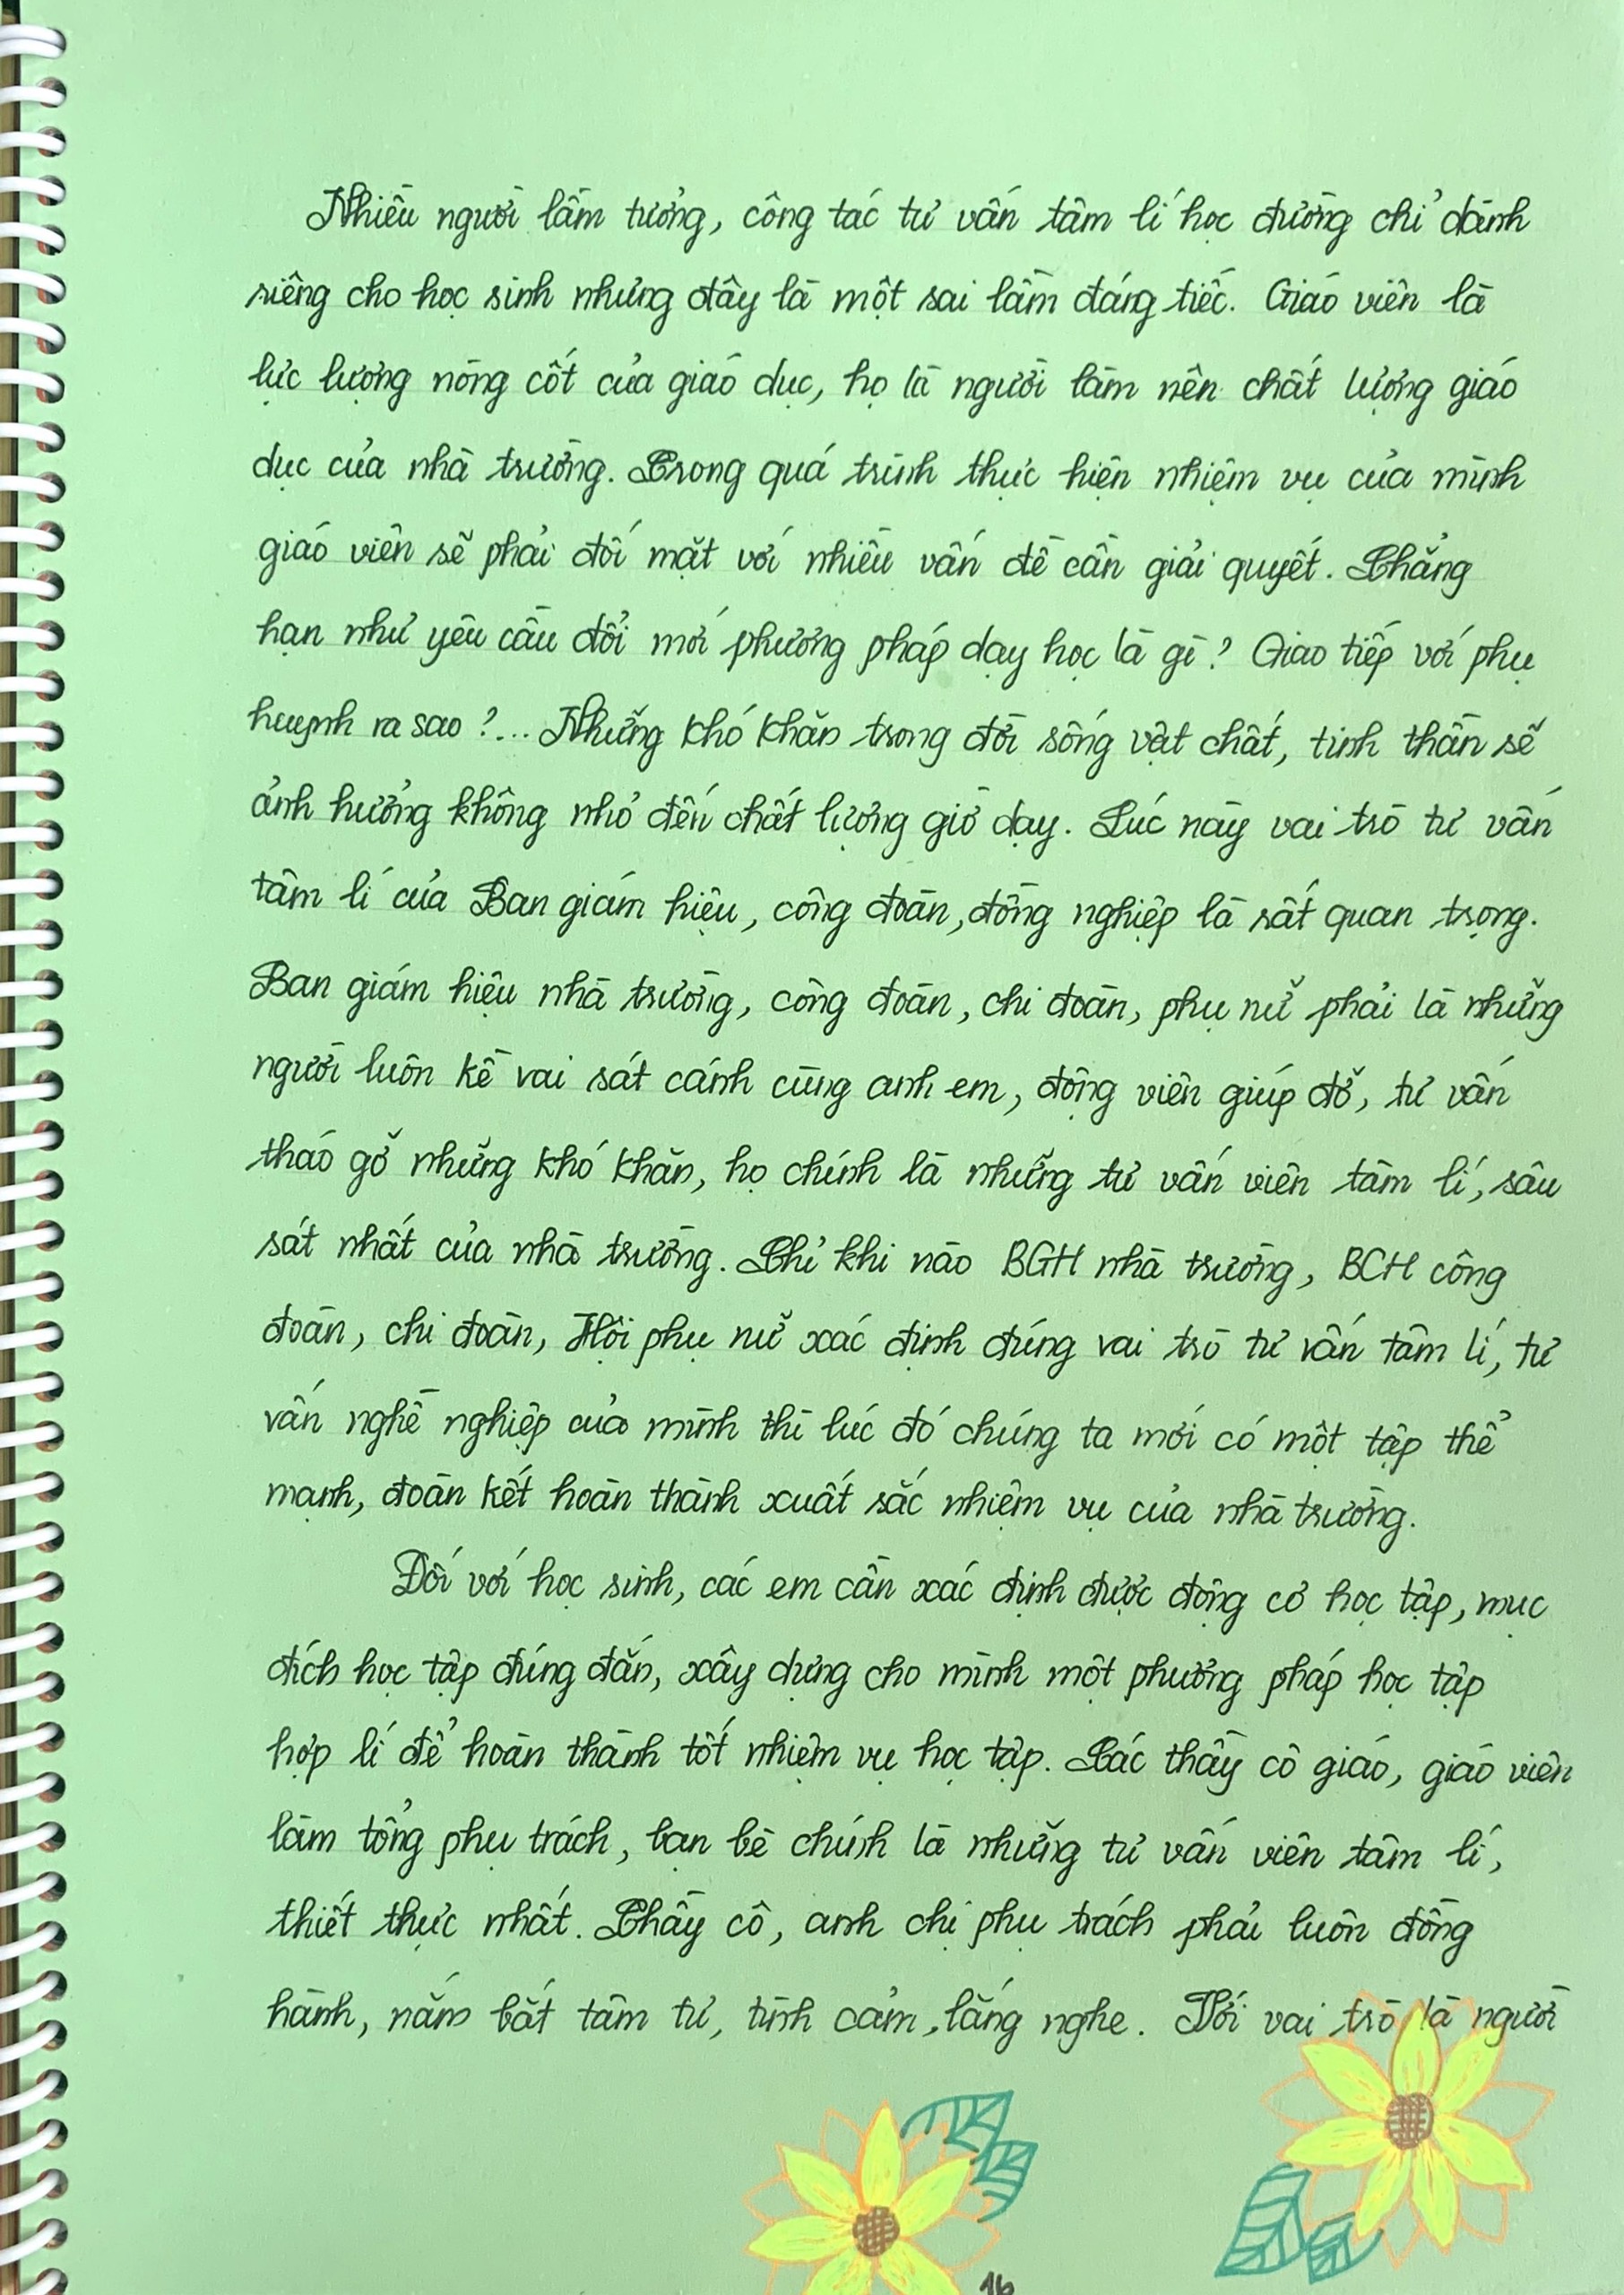 Nhiều người lầm tưởng, công tác tư vấn tâm lí học đường chỉ dành
riêng cho học sinh nhưng đây là một sai lầm đáng tiếc. Giáo viên là
lực lượng nòng cốt của giáo dục, họ là người làm nên chất lượng giáo
dục của nhà trường. Trong quá trình thực hiện nhiệm vụ của mình
giáo viên sẽ phải đối mặt với nhiều vấn đề cần giải quyết. Chẳng
hạn như yêu cầu đổi mới phương pháp dạy học là gì? Giao tiếp với phụ
huynh ra sao?... Những khó khăn trong đời sống vật chất, tinh thần sẽ
ảnh hưởng không nhỏ đến chất lượng giờ dạy. Lúc này vai trò tư vấn
tâm lí của Ban giám hiệu, công đoàn, đồng nghiệp là rất quan trọng.
Ban giám hiệu nhà trường, công đoàn, chi đoàn, phụ nữ phải là những
người luôn kề vai sát cánh cùng anh em, động viên giúp đỡ, tư vấn
tháo gỡ những khó khăn, họ chính là những tư vấn viên tâm lí, sâu
sát nhất của nhà trường. Chỉ khi nào BGH nhà trường, BCH công
đoàn, chi đoàn, Hội phụ nữ xác định đúng vai trò tư vấn tâm lí, tư
vấn nghề nghiệp của mình thì lúc đó chúng ta mới có một tập thể
mạnh, đoàn kết hoàn thành xuất sắc nhiệm vụ của nhà trường.
Đối với học sinh, các em cần xác định được động cơ học tập, mục
đích học tập đúng đắn, xây dựng cho mình một phương pháp học tập
hợp lí để hoàn thành tốt nhiệm vụ học tập. Các thầy cô giáo, giáo viên
làm tổng phụ trách, bạn bè chính là những tư vấn viên tâm lí,
thiết thực nhất. Thầy cô, anh chị phụ trách phải luôn đồng
hành, nắm bắt tâm tư, tình cảm, lắng nghe. Với vai trò là người
16